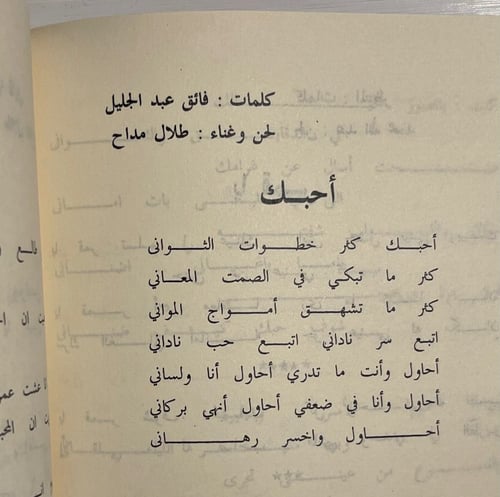 كلمات : فائق عبد الجليل
لحن وغناء : طلال مداح
أحبـــك
أحبـك كثر خطـوات الثـوانى
كثر ما تبكي في الصمت المعـاني
كثر ما تشهـق أمـواج المواني
اتبع سر ناداني اتبع حب ناداني
أحاول وأنت ما تدري أحاول أنا ولساني
أحاول وأنا في ضعفي أحاول أنهي بركاني
أحـــاول واخسر رهـــانى